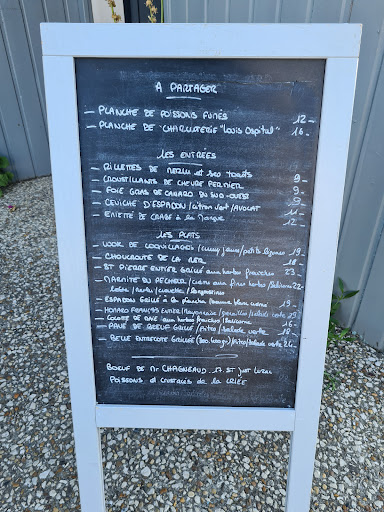 À PARTAGER
- PLANCHE DE POISSONS FUMÉS 12-
- PLANCHE DE CHARCUTERIE "Louis Ospital" 16-
LES ENTRÉES
- RILLETTES DE MERLU et ses toasts 9-
- CROUSTILLANTS DE CHEVRE FERMIER 9-
- FOIE GRAS DE CANARD DU SUD-OUEST
- CEVICHE D'ESPADON / citron vert / AVOCAT 11-
- EMIETTÉ DE CRABE à la Mangue 12-
LES PLATS
- WOK DE COQUILLAGES / curry jaune / petits légumes 19-
- CHOUCROUTE DE LA MER 18-
- ST PIERRE ENTIER GRILLÉ aux herbes fraiches 23-
- MARMITE DU PÊCHEUR / aux fines herbes 22-
- ESPADON GRILLÉ à la plancha 19-
- COCOTTE DE aux herbes fraiches 16-
- PAVÉ DE BOEUF GRILLÉ / frites / salade verte
- BELLE ENTRECOTE GRILLÉE / frites / salade verte
BOEUF DE Mr CHAGNEAUD à St Just
POISSONS et crustacés de la CRIÉE